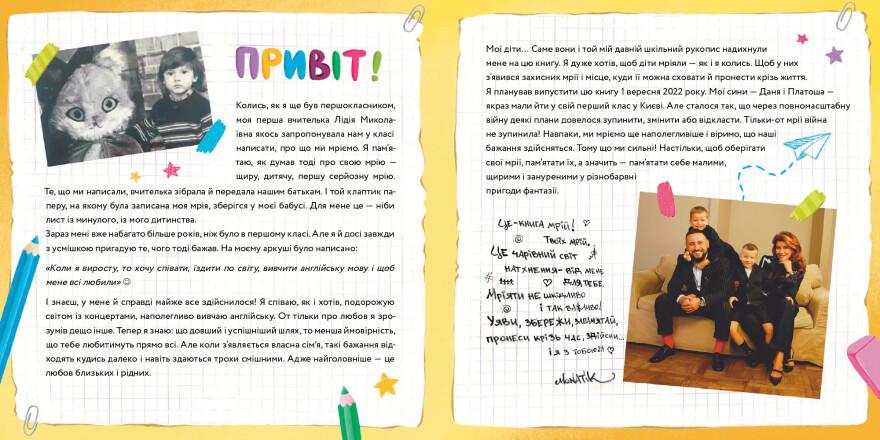 ПРИВІТ!
Колись, як я ще був першокласником,
моя перша вчителька Лідія Микола-
ївна якось запропонувала нам у класі
написати, про що ми мріємо. Я пам'я-
таю, як думав тоді про свою мрію —
щиру, дитячу, першу серйозну мрію.
Те, що ми написали, вчителька зібрала й передала нашим батькам. І той клаптик па-
перу, на якому була записана моя мрія, зберігся у моєї бабусі. Для мене це — ніби
лист із минулого, із мого дитинства.
Зараз мені вже набагато більше років, ніж було в першому класі. Але я й досі завжди
з усмішкою пригадую те, чого тоді бажав. На моєму аркуші було написано:
«Коли я виросту, то хочу співати, їздити по світу, вивчити англійську мову і щоб
мене всі любили» ☺
І знаєш, у мене й справді майже все здійснилося! Я співаю, як і хотів, подорожую
світом із концертами, наполегливо вивчаю англійську. От тільки про любов я зро-
зумів дещо інше. Тепер я знаю: що довший і успішніший шлях, то менша ймовірність,
що тебе любитимуть прямо всі. Але коли з'являється власна сім'я, такі бажання від-
ходять кудись далеко і навіть здаються трохи смішними. Адже найголовніше — це
любов близьких і рідних.
Мої діти... Саме вони і той мій давній шкільний рукопис надихнули
мене на цю книгу. Я дуже хотів, щоб діти мріяли — як і я колись. Щоб у них
з'явився захисник мрії і місце, куди її можна сховати й пронести крізь життя.
Я планував випустити цю книгу 1 вересня 2022 року. Мої сини — Даня і Платоша —
якраз мали йти у свій перший клас у Києві. Але сталося так, що через повномасштабну
війну деякі плани довелося зупинити, змінити або відкласти. Тільки-от мрії війна
не зупинила! Навпаки, ми мріємо ще наполегливіше і віримо, що наші
бажання здійсняться. Тому що ми сильні! Настільки, щоб оберігати
свої мрії, пам'ятати їх, а значить — пам'ятати себе малими,
щирими і зануреними у різнобарвні
пригоди фантазії.
Це-книга мрій!
Твоїх мрій.
Це чарівний світ
натхнення-від мене
для тебе
Мріяти не шкідливо
і так важливо!
Уяви, збережи, запам'ятай,
пронеси крізь час, здійсни...
і я з тобою
MONATIK